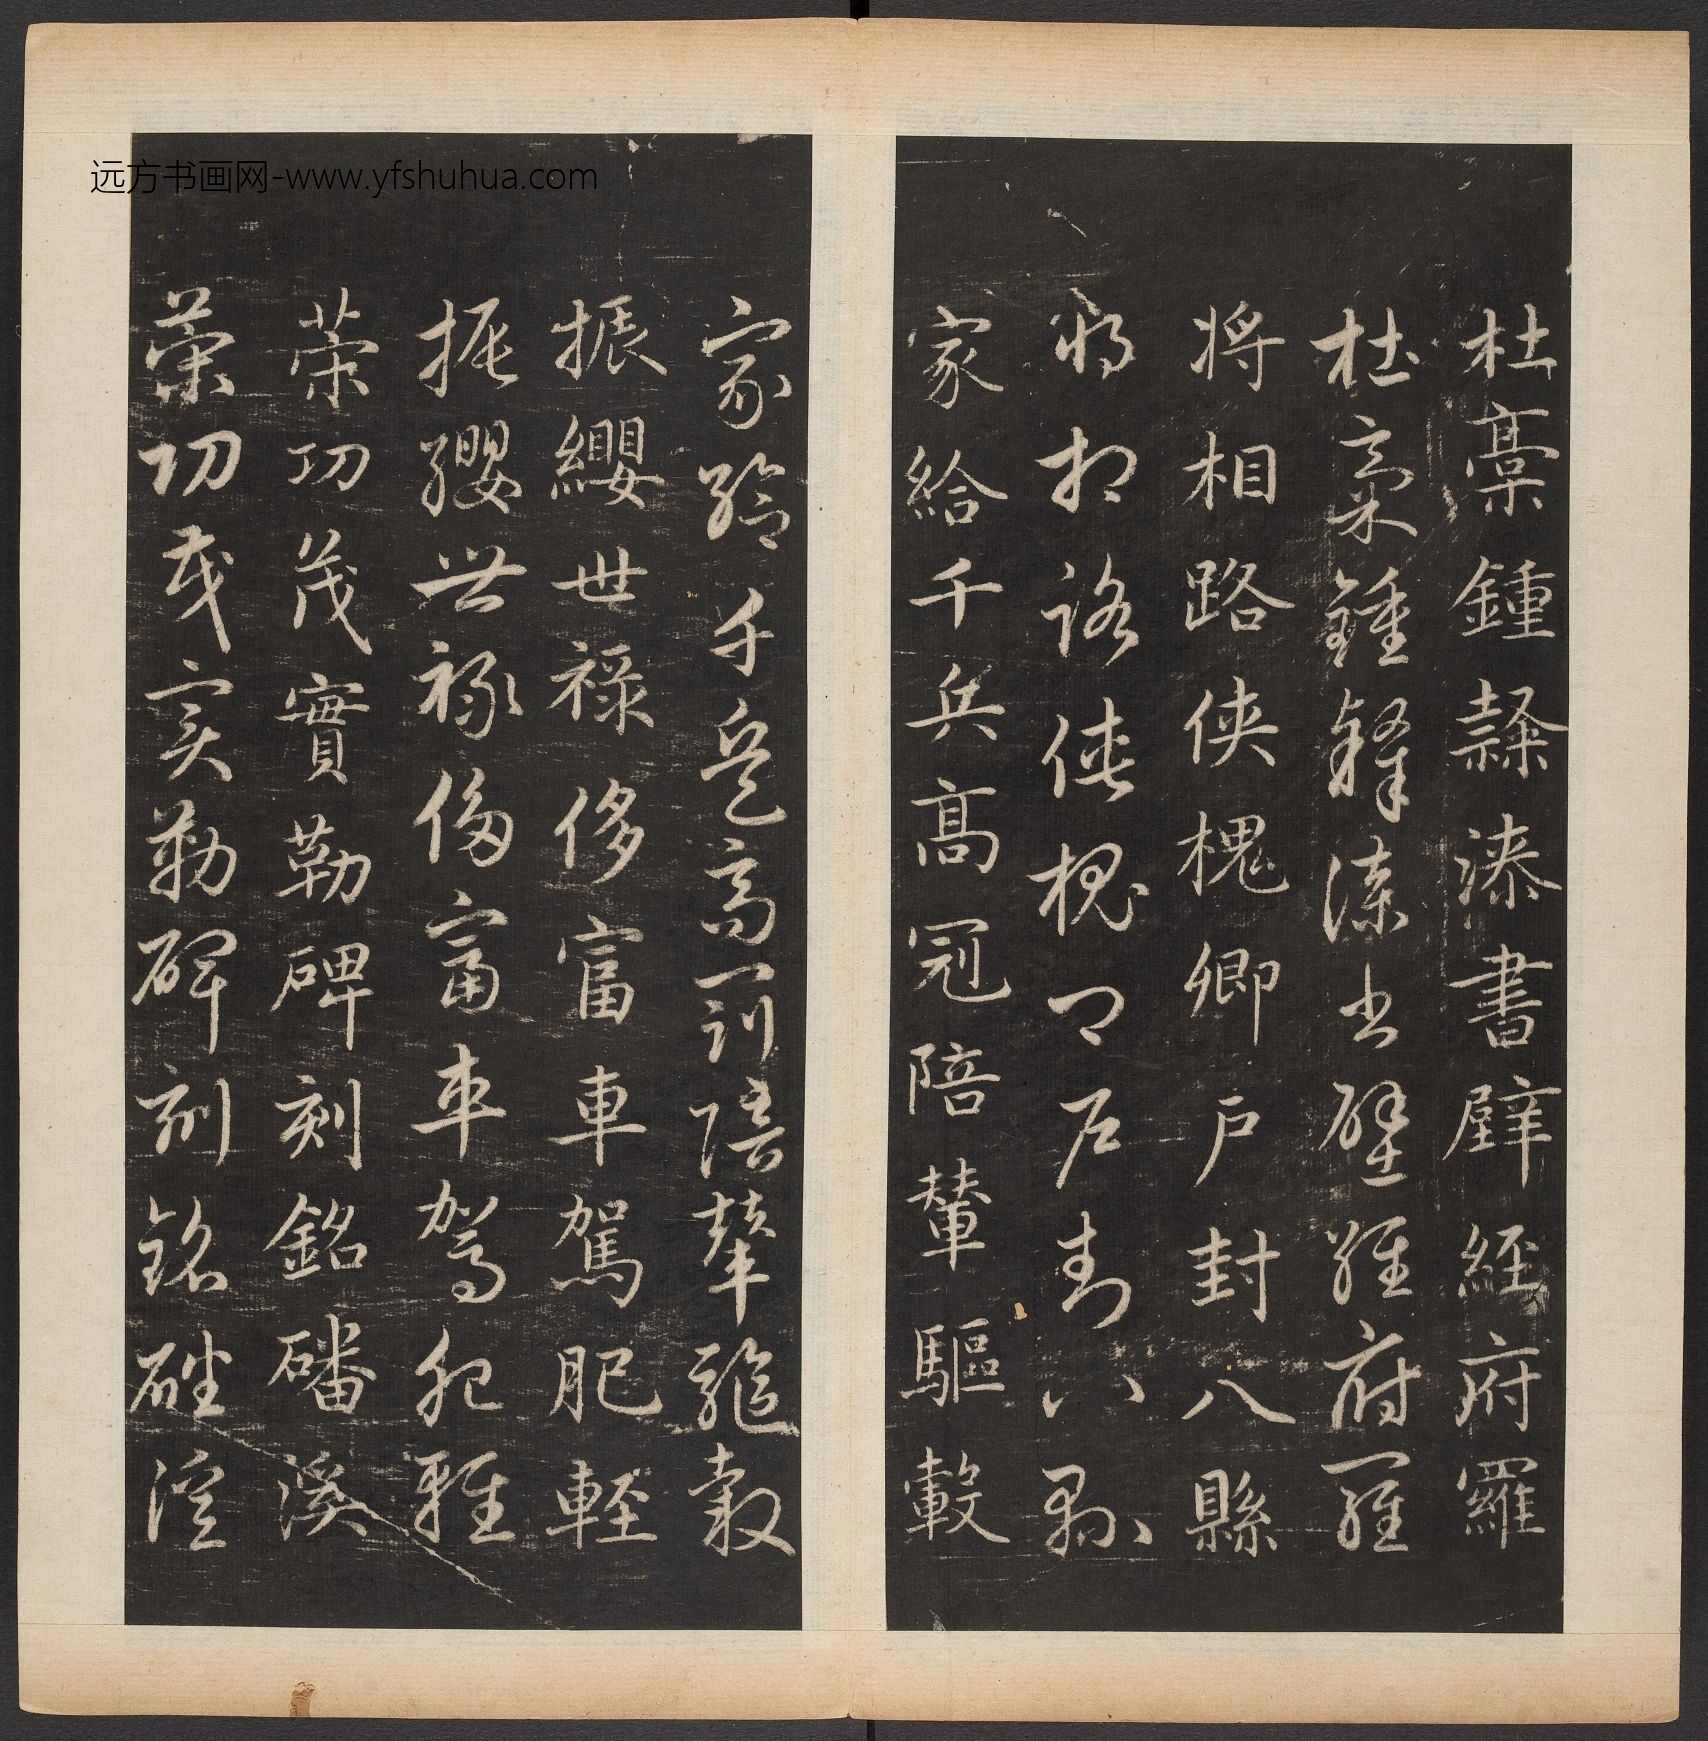 远方书画网-www.yfshuhua.com
杜稾鍾隸漆書壁經府羅
杜稾鍾隸漆書壁經府羅
将相路俠槐卿户封八縣
将相路俠槐卿户封八縣
家給千兵髙冠陪輦驅轂
家給千兵高冠陪輦驅轂
振纓世禄侈富車駕肥輕
振纓世禄侈富車駕肥輕
荣功茂實勒碑刻銘磻溪
荣功茂實勒碑刻銘磻溪